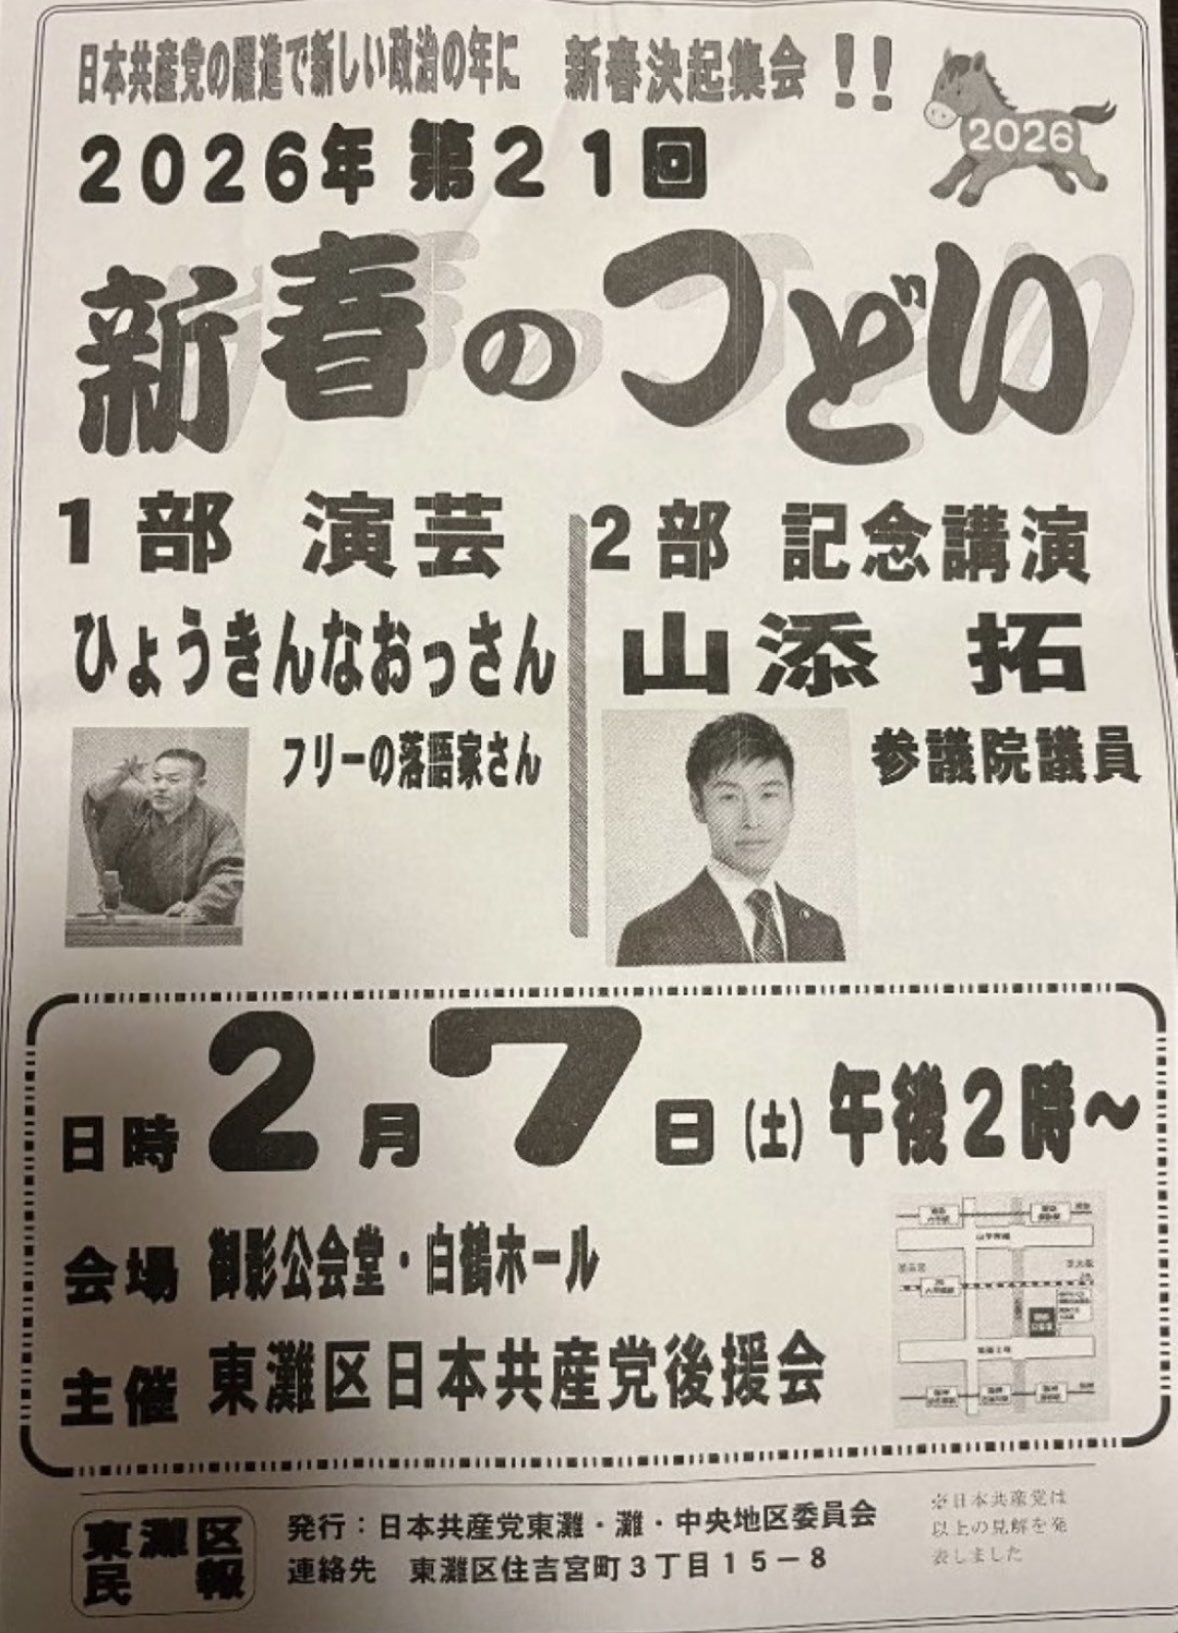 日本共産党の躍進で新しい政治の年に　新春決起集会！！
2026
２０２６年 第２１回
新春のつどい
１部　演芸
ひょうきんなおっさん
フリーの落語家さん
２部　記念講演
山添　拓
参議院議員
日時 ２月７日（土）午後２時～
会場 御影公会堂・白鶴ホール
主催 東灘区日本共産党後援会
東灘区
民報
発行：日本共産党東灘・灘・中央地区委員会
連絡先　東灘区住吉宮町３丁目１５－８
※日本共産党は
以上の見解を発
表しました